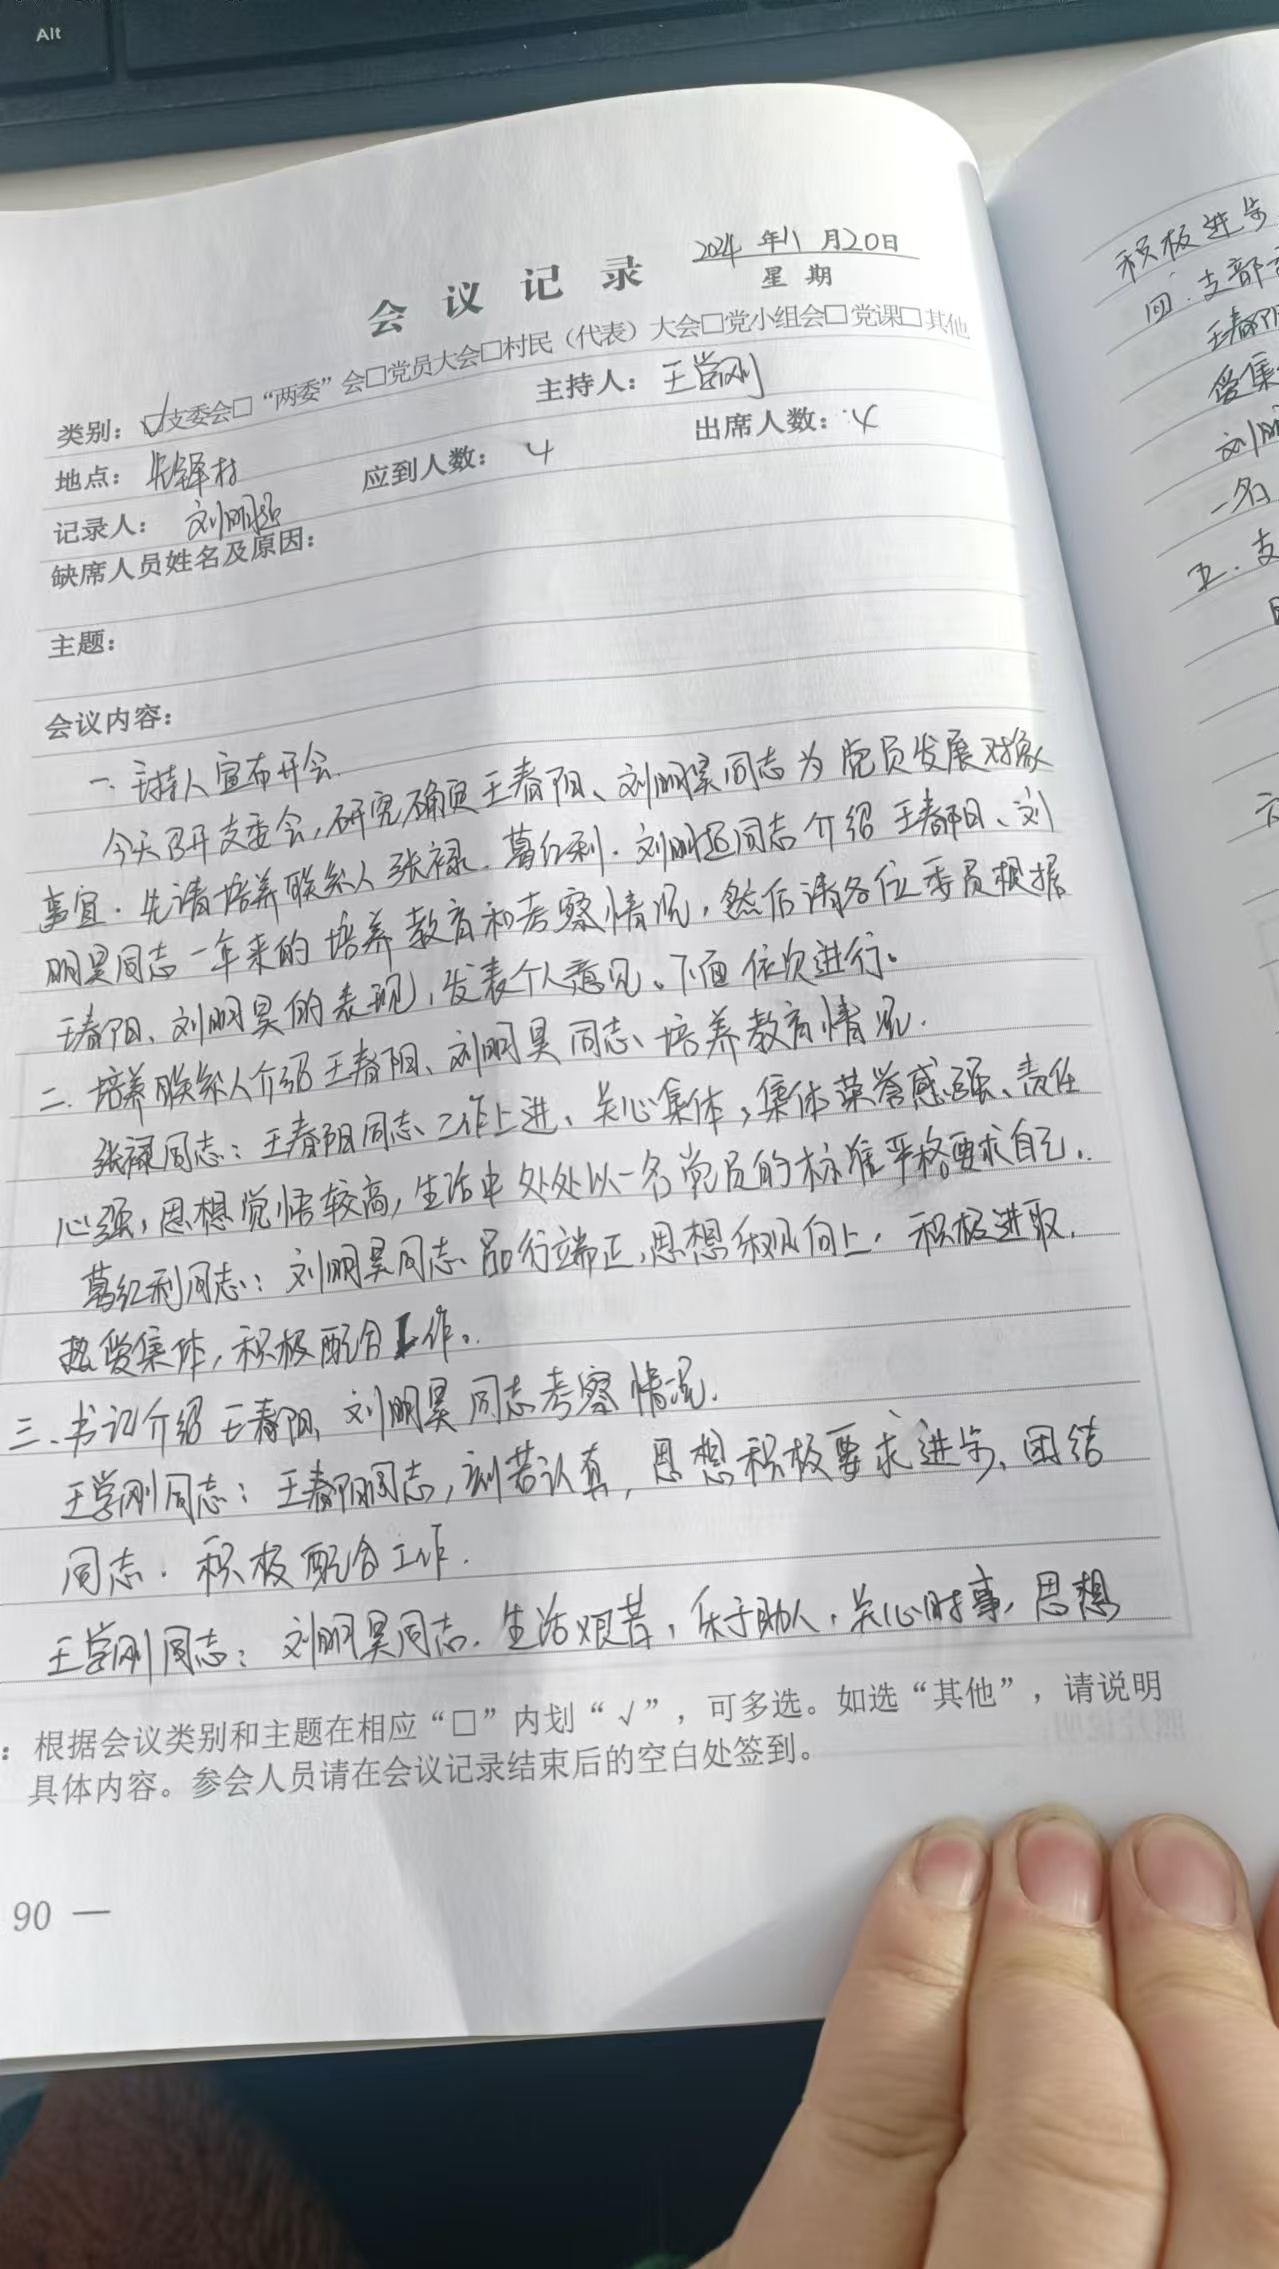 Alt
2024 年 11 月 20 日
星 期
会 议 记 录
类别：☑支委会□“两委”会□党员大会□村民（代表）大会□党小组会□党课□其他
主持人：王学刚
地点：先锋村 应到人数：4 出席人数：4
记录人：刘明
缺席人员姓名及原因：
主题：
会议内容：
一、主持人宣布开会.
今天召开支委会，研究确定王春阳、刘明昊同志为党员发展对象
事宜．先请培养联系人张禄．葛红利．刘明 同志介绍王春阳、刘
明昊同志一年来的培养教育和考察情况，然后请各位委员根据
王春阳、刘明昊的表现，发表个人意见。下面依次进行。
二．培养联系人介绍王春阳、刘明昊同志、培养教育情况．
张禄同志：王春阳同志、工作上进、关心集体，集体荣誉感强、责任
心强，思想觉悟较高，生活中处处以一名党员的标准严格要求自己．
葛红利同志：刘明昊同志、品行端正，思想积极向上，积极进取．
热爱集体，积极配合工作。
三、书记介绍王春阳、刘明昊同志考察情况．
王学刚同志：王春阳同志，刻苦认真，思想积极要求进步、团结
同志．积极配合工作．
王学刚同志：刘明昊同志．生活艰苦，乐于助人，关心时事，思想
：根据会议类别和主题在相应“□”内划“√”，可多选。如选“其他”，请说明
具体内容。参会人员请在会议记录结束后的空白处签到。
90 —
积极进步
四．支部
王春阳
爱集
刘明
一名
五．支